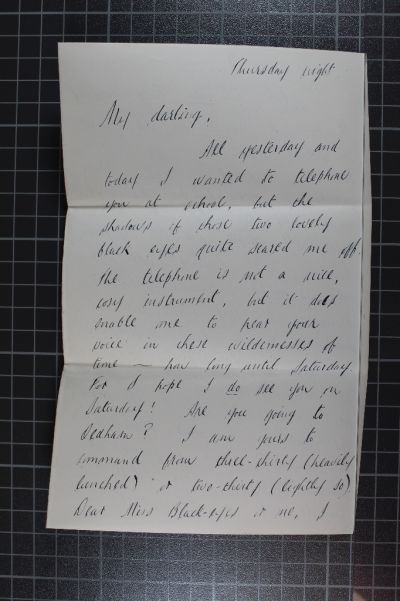 Thursday night
My darling,
All yesterday and
today I wanted to telephone
you at school, but the
shadows of those two lovely
black eyes quite scared me off.
The telephone is not a nice,
cosy instrument, but it does
enable me to hear your
voice in these wildernesses of
time — how long until Saturday.
For I hope I do see you on
Saturday! Are you going to
Dedham? I am yours to
command from three-thirty (heavily
lunched) or two-thirty (lightly so).
Dear Miss Black-eyes or no, I